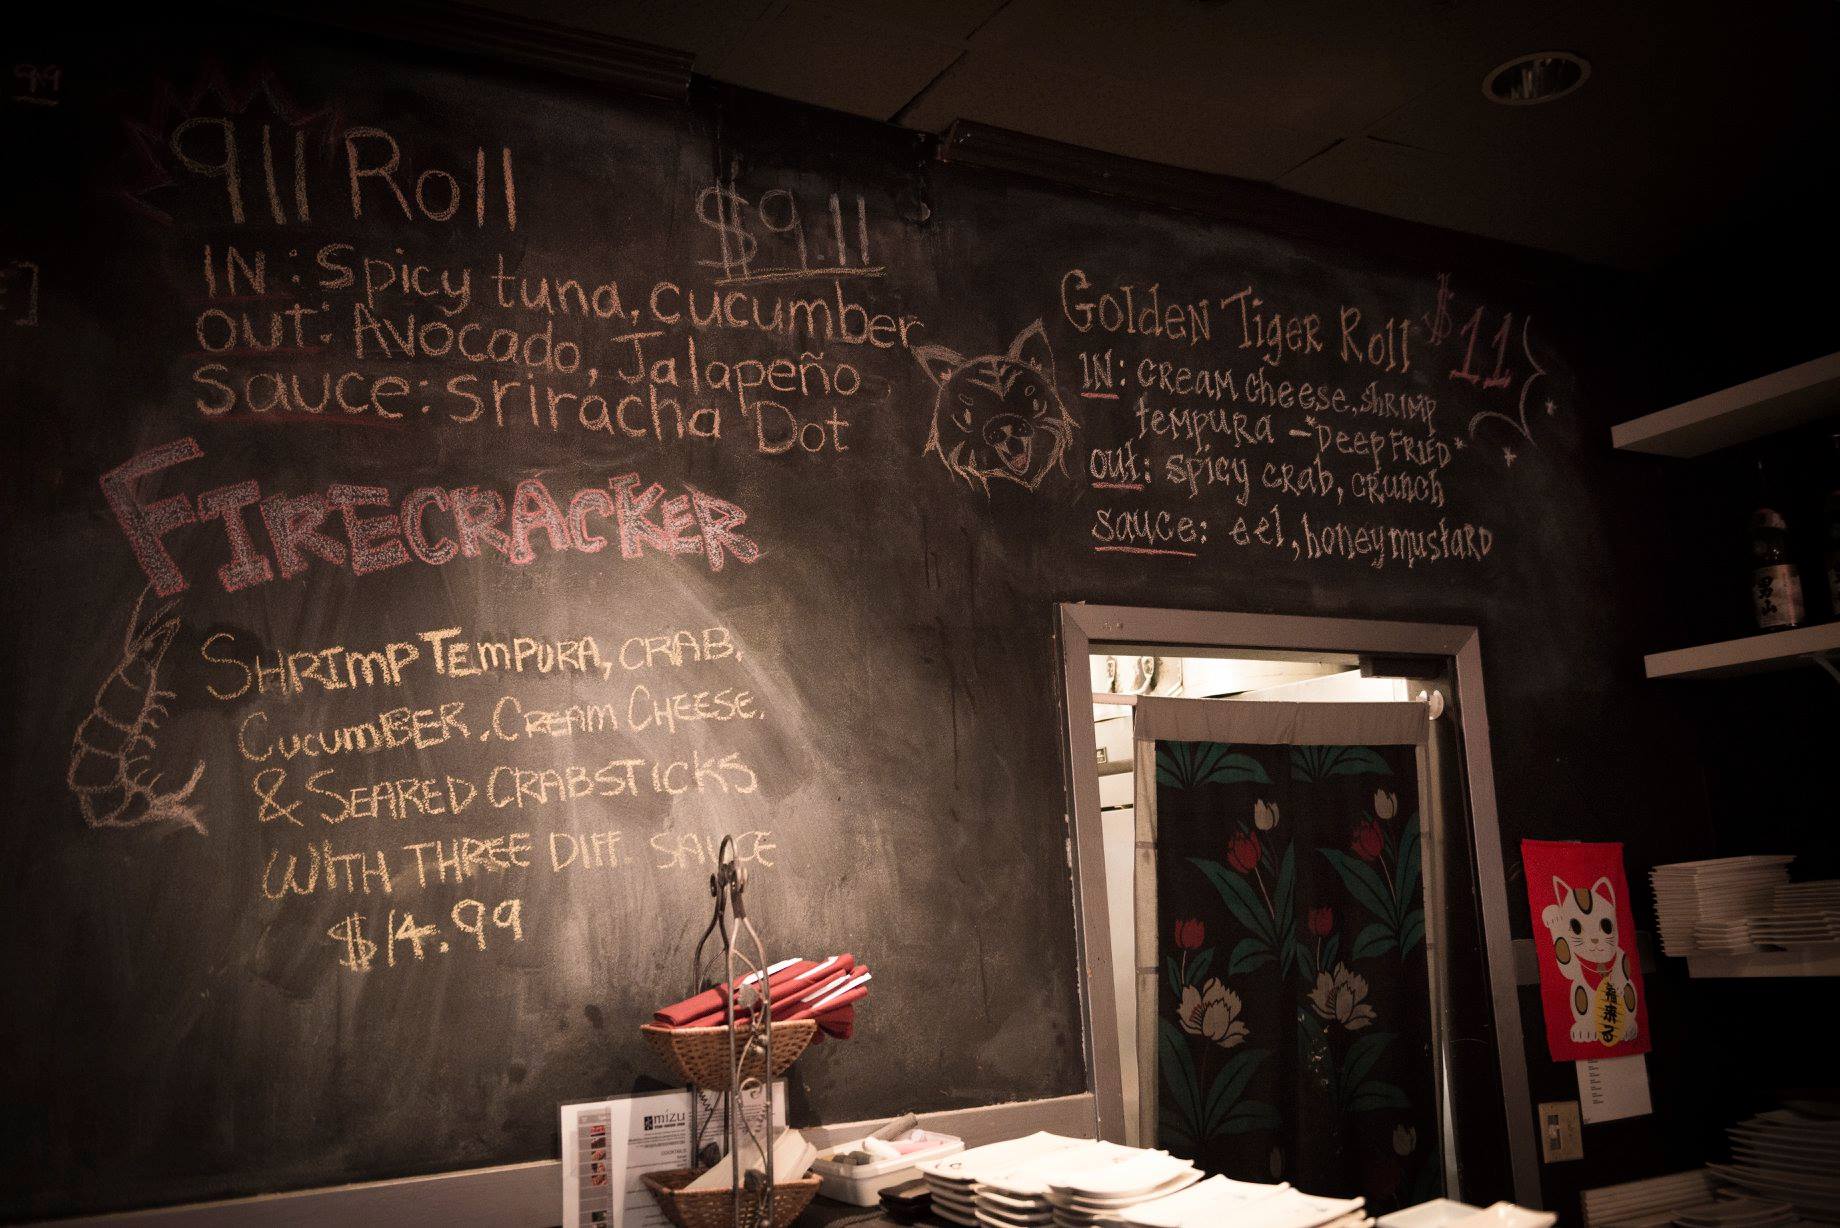 99
911 Roll
$9.11
IN: Spicy tuna, cucumber
OUT: Avocado, Jalapeño
Sauce: Sriracha Dot
FIRECRACKER
SHRIMP TEMPURA, CRAB,
CUCUMBER, CREAM CHEESE,
& SEARED CRABSTICKS
WITH THREE DIFF. SAUCE
$14.99
Golden Tiger Roll $11
IN: cream cheese, shrimp
tempura - *Deep FRIED*
out: spicy crab, crunch
sauce: eel, honey mustard
男山
mizu
COCKTAILS